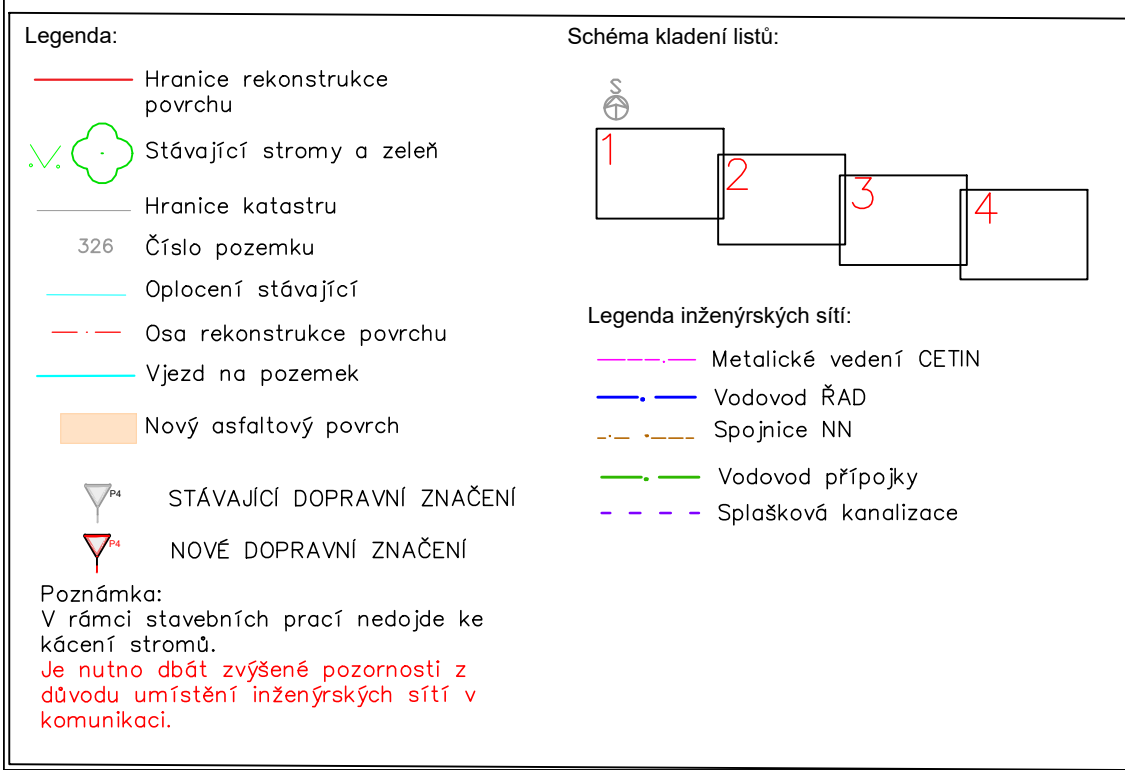 Legenda:
Hranice rekonstrukce
povrchu
Stávající stromy a zeleň
Hranice katastru
326 Číslo pozemku
Oplocení stávající
Osa rekonstrukce povrchu
Vjezd na pozemek
Nový asfaltový povrch
P4 STÁVAJÍCÍ DOPRAVNÍ ZNAČENÍ
P4 NOVÉ DOPRAVNÍ ZNAČENÍ
Poznámka:
V rámci stavebních prací nedojde ke
kácení stromů.
Je nutno dbát zvýšené pozornosti z
důvodu umístění inženýrských sítí v
komunikaci.
Schéma kladení listů:
S
1
2
3
4
Legenda inženýrských sítí:
Metalické vedení CETIN
Vodovod ŘAD
Spojnice NN
Vodovod přípojky
Splašková kanalizace